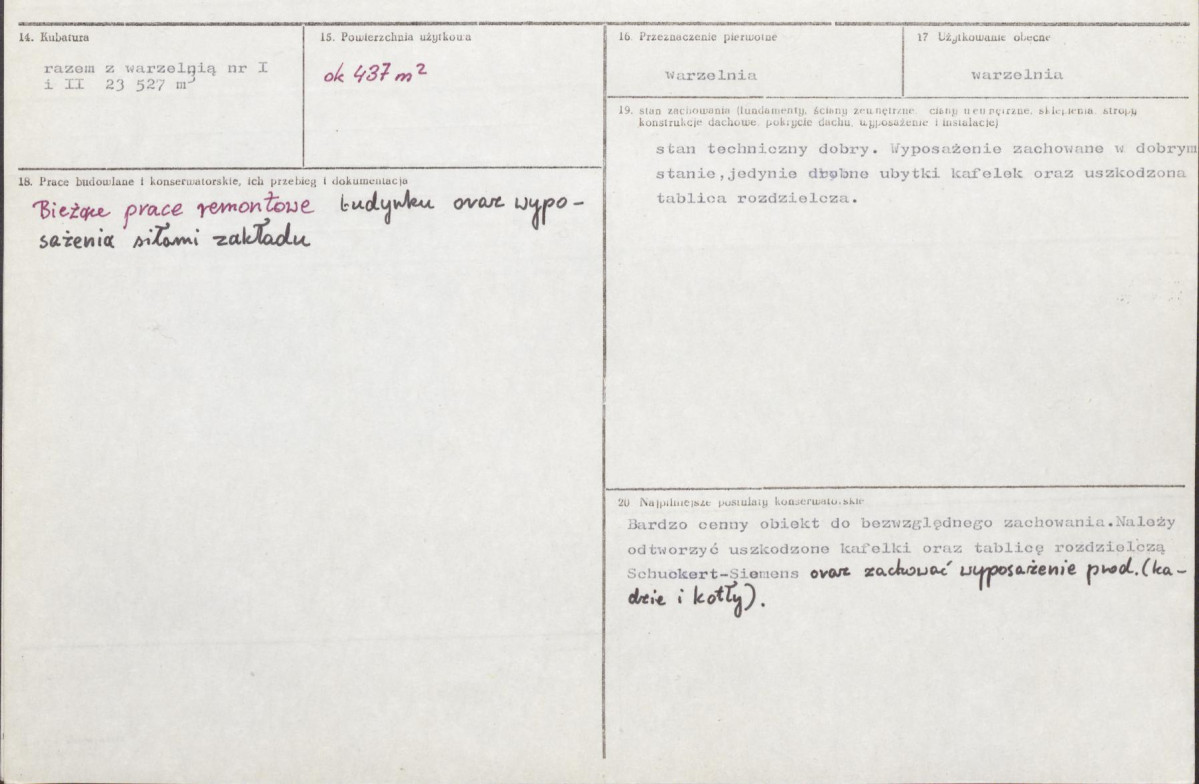 14. Kubatura
razem z warzelnią nr I
i II 23 527 m³
15. Powierzchnia użytkowa
ok 437 m²
16. Przeznaczenie pierwotne
warzelnia
17 Użytkowanie obecne
warzelnia
18. Prace budowlane i konserwatorskie, ich przebieg i dokumentacja
Bieżące prace remontowe budynku oraz wypo-
sażenia siłami zakładu
19. stan zachowania (fundamenty, ściany zewnętrzne, ściany wewnętrzne, sklepienia, stropy
konstrukcje dachowe, pokrycie dachu, wyposażenie i instalacje)
stan techniczny dobry. Wyposażenie zachowane w dobrym
stanie,jedynie drobne ubytki kafelek oraz uszkodzona
tablica rozdzielcza.
20 Najpilniejsze postulaty konserwatorskie
Bardzo cenny obiekt do bezwzględnego zachowania.Należy
odtworzyć uszkodzone kafelki oraz tablicę rozdzielczą
Schuckert-Siemens oraz zachować wyposażenie prod.(ka-
dzie i kotły).